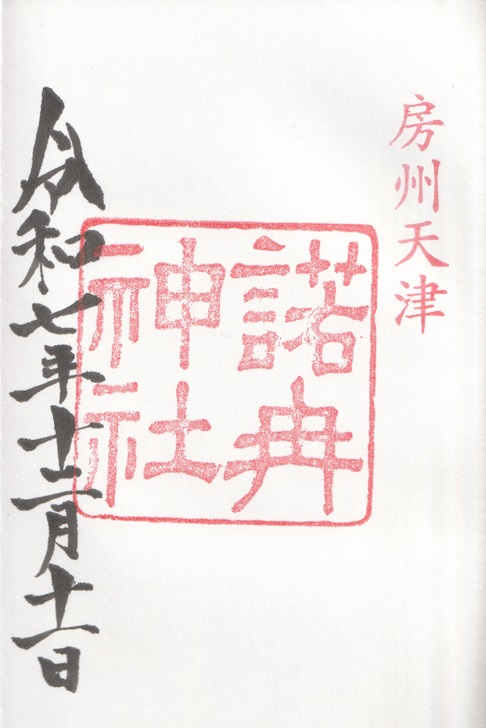 房州天津
諾冉
神社
令和七年十二月十一日